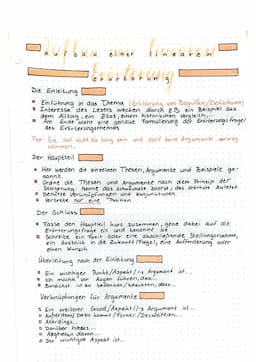 Aufbau einer linearen
Erörterung
Die Einleitung
Einführung in das Thema (Erklärung von Begriffen/Definitionen)
Interesse des Lesers wecken durch z.B. ein Beispiel aus
dem Alltag, ein Zitat, einen historischen Vergleich,...
Am Ende steht eine genaue Formulierung der Erörterungsfrage/
des Erörterungsthemas
Tipp: Sie soll nicht zu lang sein und darf keine Argumente vorweg
nehmen.
Der Hauptteil
Hier werden die einzelnen Thesen, Argumente und Beispiele ge-
nannt.
Ordne die Thesen und Argumente nach dem Prinzip der
Steigerung: Nenne das schwächste zuerst, das stärkste zuletzt
Benutze Verknüpfungen und
Vertrete nur eine Position
Der Schluss
Fasse den Hauptteil kurz zusammen, gehe dabei auf die
Erörterungsfrage ein und
Schreibe ein Fazit oder eine abschließende Stellungnahme,
ein Ausblick in die Zukunft (Frage), eine Aufforderung oder
einen Wunsch
Überleitung nach der Einleitung
Ein wichtiger Punkt/Aspekt/-s Argument ist...
Ich möchte vor Augen führen, dass...
Zunächst ist zu bedenken/beachten, dass...
Verknüpfungen für Argumente
Ein weiterer Grund/Aspekt/-s Argument ist...
Außerdem/Dazu kommt/Ferner/Desweiteren...
Allerdings...
Darüber hinaus...
Abgesehen davon...
Der wichtigste Aspekt ist...